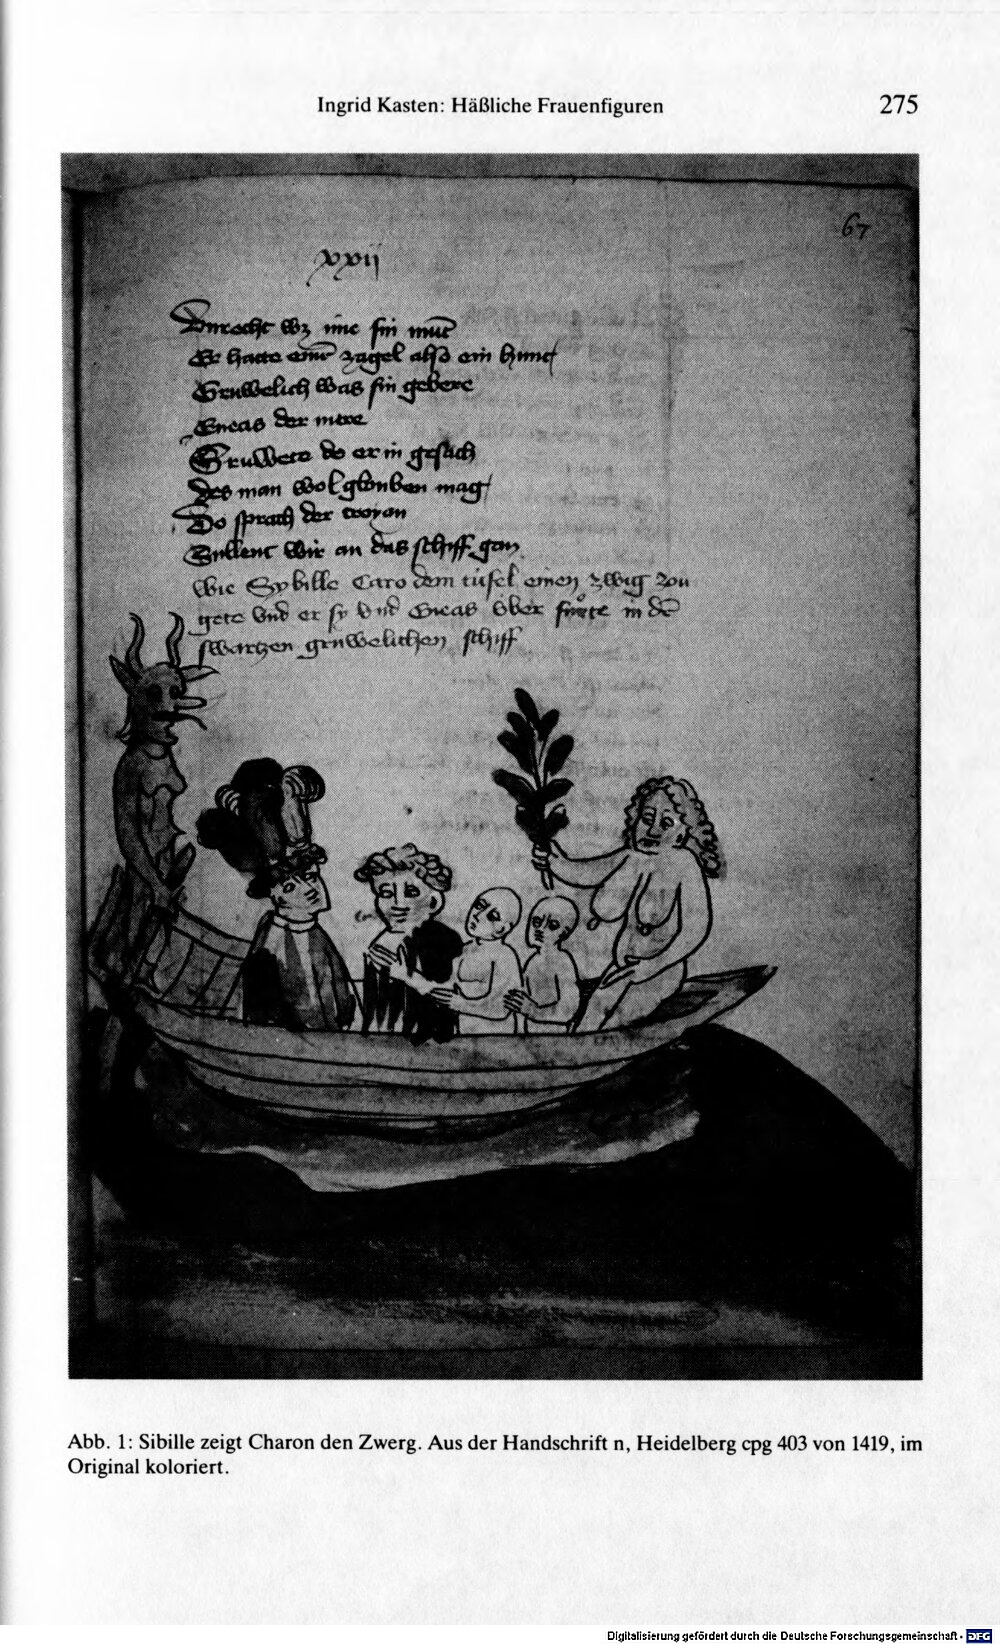 Ingrid Kasten: Häßliche Frauenfiguren 275
67
xxvij
sin mut
Er hatte eine zagel also ein hunt
Gruwelich was sin gebere
Eneas der mere
Gruwete do er in gesach
Des man wol glouben mag
Do sprach der troyan
Sullent wir an das schiff gan
Wie Sybille Caro dem tüfel einen zwig zou
gete vnd er sy vnd Eneas vber fürte in de
swartzen gruwelichen schiff
Abb. 1: Sibille zeigt Charon den Zwerg. Aus der Handschrift n, Heidelberg cpg 403 von 1419, im
Original koloriert.
Digitalisierung gefördert durch die Deutsche Forschungsgemeinschaft - DFG